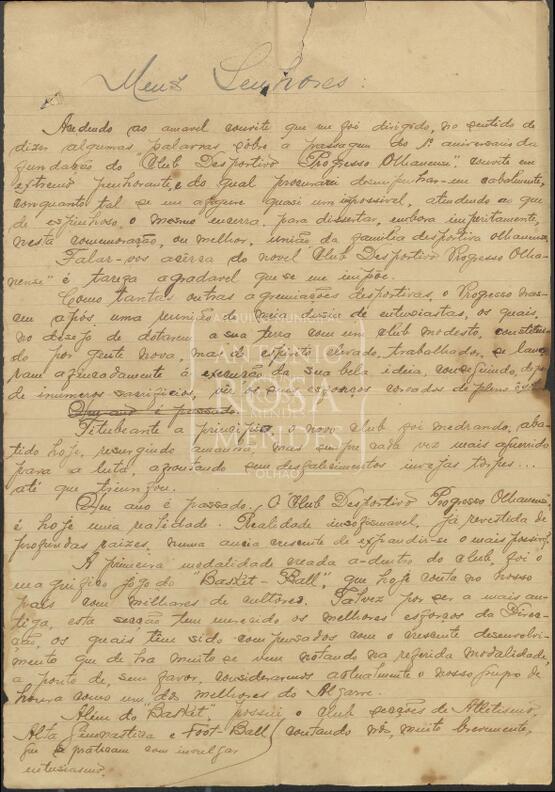 Meus Senhores:
Acedendo ao amavel convite que me foi dirigido, no sentido de
dizer algumas palavras sobre a passagem do 1º aniversario da
fundação do "Club Desportivo Progresso Olhanense" convite em
extremo penhorante, e do qual procurarei desempenhar-me cabalmente,
conquanto tal se me afigure quasi um impossivel, atendendo ao que
de espinhoso o mesmo encerra, para dissertar, embora imperitamente,
nesta comemoração, ou melhor, união da familia desportiva olhanense.
Falar-vos acerca do novel Club Desportivo Progresso Olha-
nense" é tarefa agradavel que se me impõe.
Como tantas outras agremiações desportivas, o Progresso nas-
ceu após uma reunião de meia duzia de entusiastas, os quais,
no desejo de dotarem a sua terra com um club modesto, constitui-
do por gente nova, mas de espirito elevado, trabalhador, se lança-
ram afincadamente á execução da sua bela ideia, conseguindo, depois
de inumeros sacrificios, ver os seus esforços coroados de pleno exito.
Um ano é passado.
Titubeante a principio, o novo club foi medrando, aba-
tido hoje, resurgindo amanhã, mas sempre cada vez mais aguerrido
para a luta, afrontando sem desfalecimentos invejas torpes...
até que triunfou.
Um ano é passado. O Club Desportivo Progresso Olhanense,
é hoje uma realidade. Realidade insofismavel, já revestida de
profundas raizes, numa ancia crescente de expandir-se o mais possivel.
A primeira modalidade creada a-dentro do club, foi o
magnifico jogo do "Basket-Ball", que hoje conta no nosso
país com milhares de cultores. Talvez por ser a mais an-
tiga, esta secção tem merecido os melhores esforços da Direc-
ção, os quais têm sido compensados com o crescente desenvolvi-
mento que de ha muito se vem notando na referida modalidade,
a ponto de, sem favor, considerarmos actualmente o nosso grupo de
honra como um dos melhores do Algarve.
Além do "Basket" possui o club secções de Atletismo,
Alta Gimnastica e Foot-Ball, contando nós, muito brevemente,
que se praticam com invulgar
entusiasmo.
ANTÓNIO
ROSA
MENDES
OLHÃO